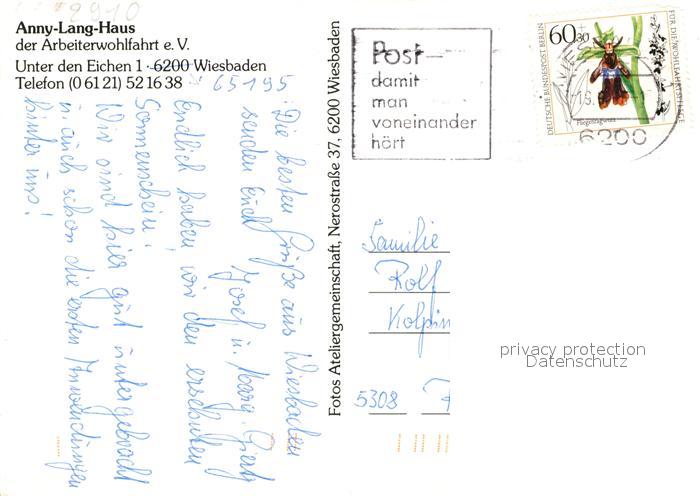 2910
Anny-Lang-Haus
der Arbeiterwohlfahrt e. V.
Unter den Eichen 1 · 6200 Wiesbaden
Telefon (0 61 21) 52 16 38
65195
Die besten Grüße aus Wiesbaden
senden Euch
Josef u. Maria
Endlich haben wir den ersehnten
Sonnenschein.
Wir sind hier gut untergebracht
u. auch schon die ersten Anwendungen
hinter uns!
Fotos Ateliergemeinschaft, Nerostraße 37, 6200 Wiesbaden
Post –
damit
man
voneinander
hört
60+30
DEUTSCHE BUNDESPOST BERLIN
FÜR DIE WOHLFAHRTSPFLEGE
Fliegenragwurz
WIES
15.
6200
Familie
Rolf
Kolpin
5308
privacy protection
Datenschutz